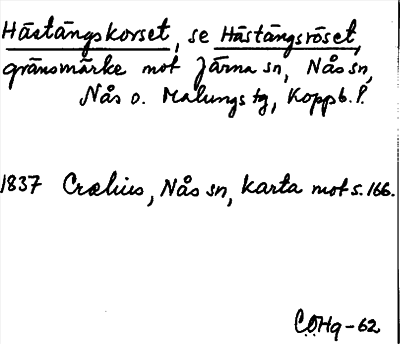 Hästängskorset, se Hästängsröset,
gränsmärke mot Järna sn, Nås sn,
Nås o. Malungs tg, Koppb. l.
1837 Crælius, Nås sn, karta mot s. 166.
CÖHq-62